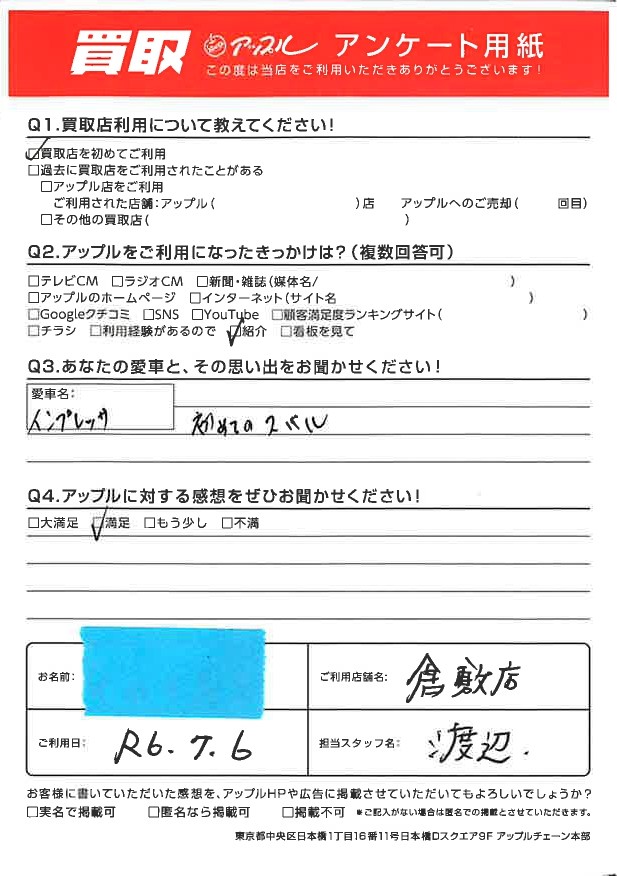 買取 アップル アンケート用紙
この度は当店をご利用いただきありがとうございます!
Q1.買取店利用について教えてください!
☑買取店を初めてご利用
□過去に買取店をご利用されたことがある
□アップル店をご利用
ご利用された店舗:アップル( )店 アップルへのご売却( 回目)
□その他の買取店( )
Q2.アップルをご利用になったきっかけは?(複数回答可)
□テレビCM □ラジオCM □新聞・雑誌(媒体名/ )
□アップルのホームページ □インターネット(サイト名 )
□Googleクチコミ □SNS □YouTube □顧客満足度ランキングサイト( )
□チラシ □利用経験があるので ☑紹介 □看板を見て
Q3.あなたの愛車と、その思い出をお聞かせください!
愛車名:
インプレッサ 初めてのスバル
Q4.アップルに対する感想をぜひお聞かせください!
□大満足 ☑満足 □もう少し □不満
お名前: ご利用店舗名: 倉敷店
ご利用日: R6.7.6 担当スタッフ名: 渡辺.
お客様に書いていただいた感想を、アップルHPや広告に掲載させていただいてもよろしいでしょうか?
□実名で掲載可 □匿名なら掲載可 □掲載不可 *ご記入がない場合は匿名での掲載とさせていただきます。
東京都中央区日本橋1丁目16番11号日本橋Dスクエア9F アップルチェーン本部